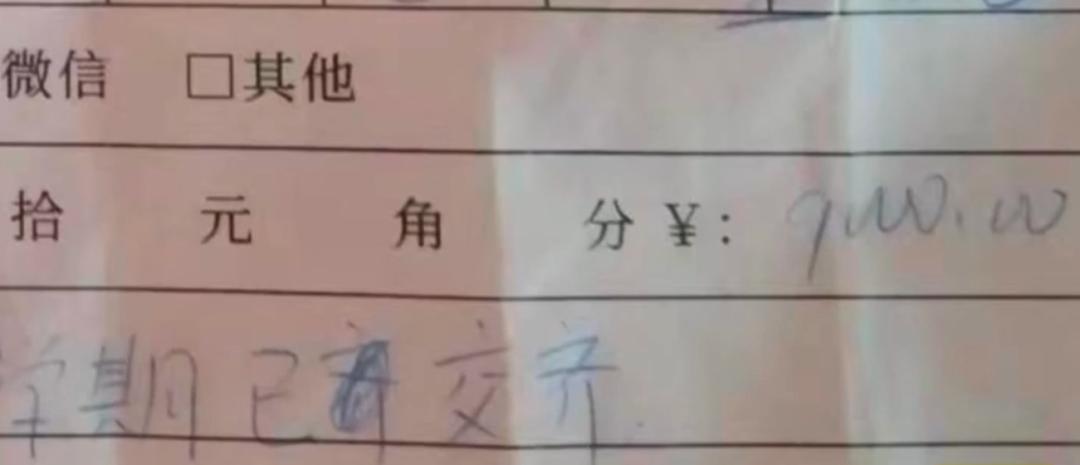 微信 □其他
拾 元 角 分 ¥: 9000.00
学期已交齐.